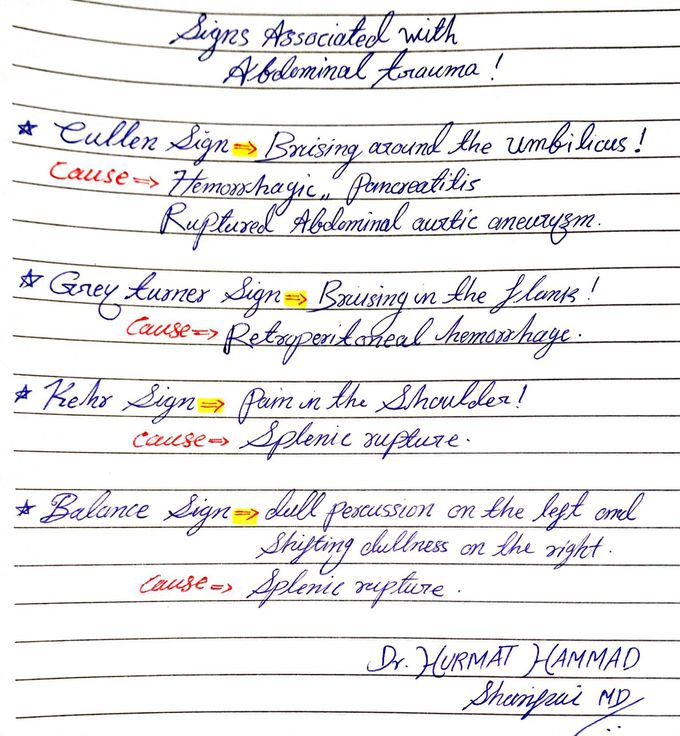 Signs Associated with
Abdominal trauma!
☆ Cullen Sign ⇒ Bruising around the Umbilicus!
Cause ⇒ Hemorrhagic,, Pancreatitis
Ruptured Abdominal aortic aneurysm.
☆ Grey turner Sign ⇒ Bruising in the flank!
Cause ⇒ Retroperitoneal hemorrhage.
☆ Kehr Sign ⇒ Pain in the Shoulder!
Cause ⇒ Splenic rupture.
☆ Balance Sign ⇒ dull percussion on the left and
Shifting dullness on the right.
Cause ⇒ Splenic rupture.
Dr. HURMAT HAMMAD
MD